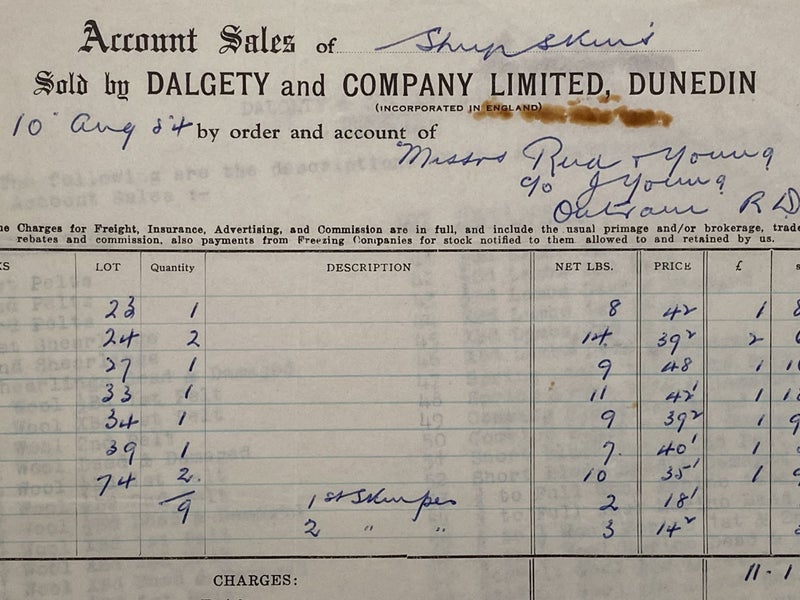 Account Sales of Sheepskins
Sold by DALGETY and COMPANY LIMITED, DUNEDIN
(INCORPORATED IN ENGLAND)
10 Aug 54 by order and account of
Messrs Reid & Young
c/o J Young
Outram R D
The following are the description
Account Sales :-
e Charges for Freight, Insurance, Advertising, and Commission are in full, and include the usual primage and/or brokerage, trade
rebates and commission, also payments from Freezing Companies for stock notified to them allowed to and retained by us.
KS LOT Quantity DESCRIPTION NET LBS. PRICE £ s
23 1 8 42 1 8
24 2 14 39² 2
27 1 9 48 1
33 1 11 42¹ 1
34 1 9 39² 1 9
39 1 7 40¹ 1
74 2 10 35¹ 1 9
9 1st 2 18¹
2 " " 3 14²
CHARGES: 11 - 1